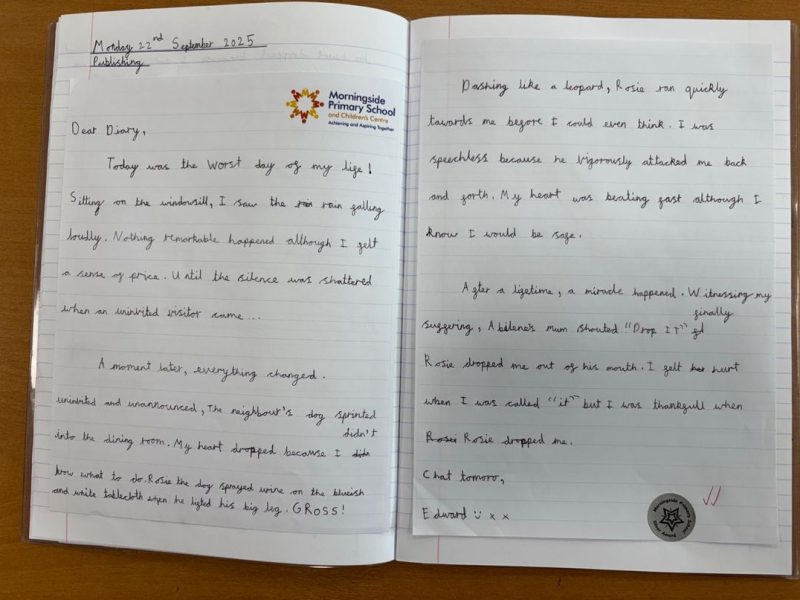 Monday 22nd September 2025
Publishing
Morningside
Primary School
and Children's Centre
Achieving and Aspiring Together
Dear Diary,
Today was the worst day of my life!
Sitting on the windowsill, I saw the rain falling
loudly. Nothing remarkable happened although I felt
a sense of price. Until the silence was shattered
when an uninvited visitor came...
A moment later, everything changed.
uninvited and unannounced, The neighbour's dog sprinted
didn't
into the dining room. My heart dropped because I
know what to do. Rosie the dog sprayed urine on the blueish
and white tablecloth when he lifted his big leg. GROSS!
Dashing like a leopard, Rosie ran quickly
towards me before I could even think. I was
speechless because he vigorously attacked me back
and forth. My heart was beating fast although I
know I would be safe.
After a lifetime, a miracle happened. Witnessing my
finally
suffering, Abilene's mum shouted "Drop IT"
Rosie dropped me out of his mouth. I felt hurt
when I was called "it" but I was thankfull when
Rosie dropped me.
Chat tomoro,
Edward x x
Morningside Primary School